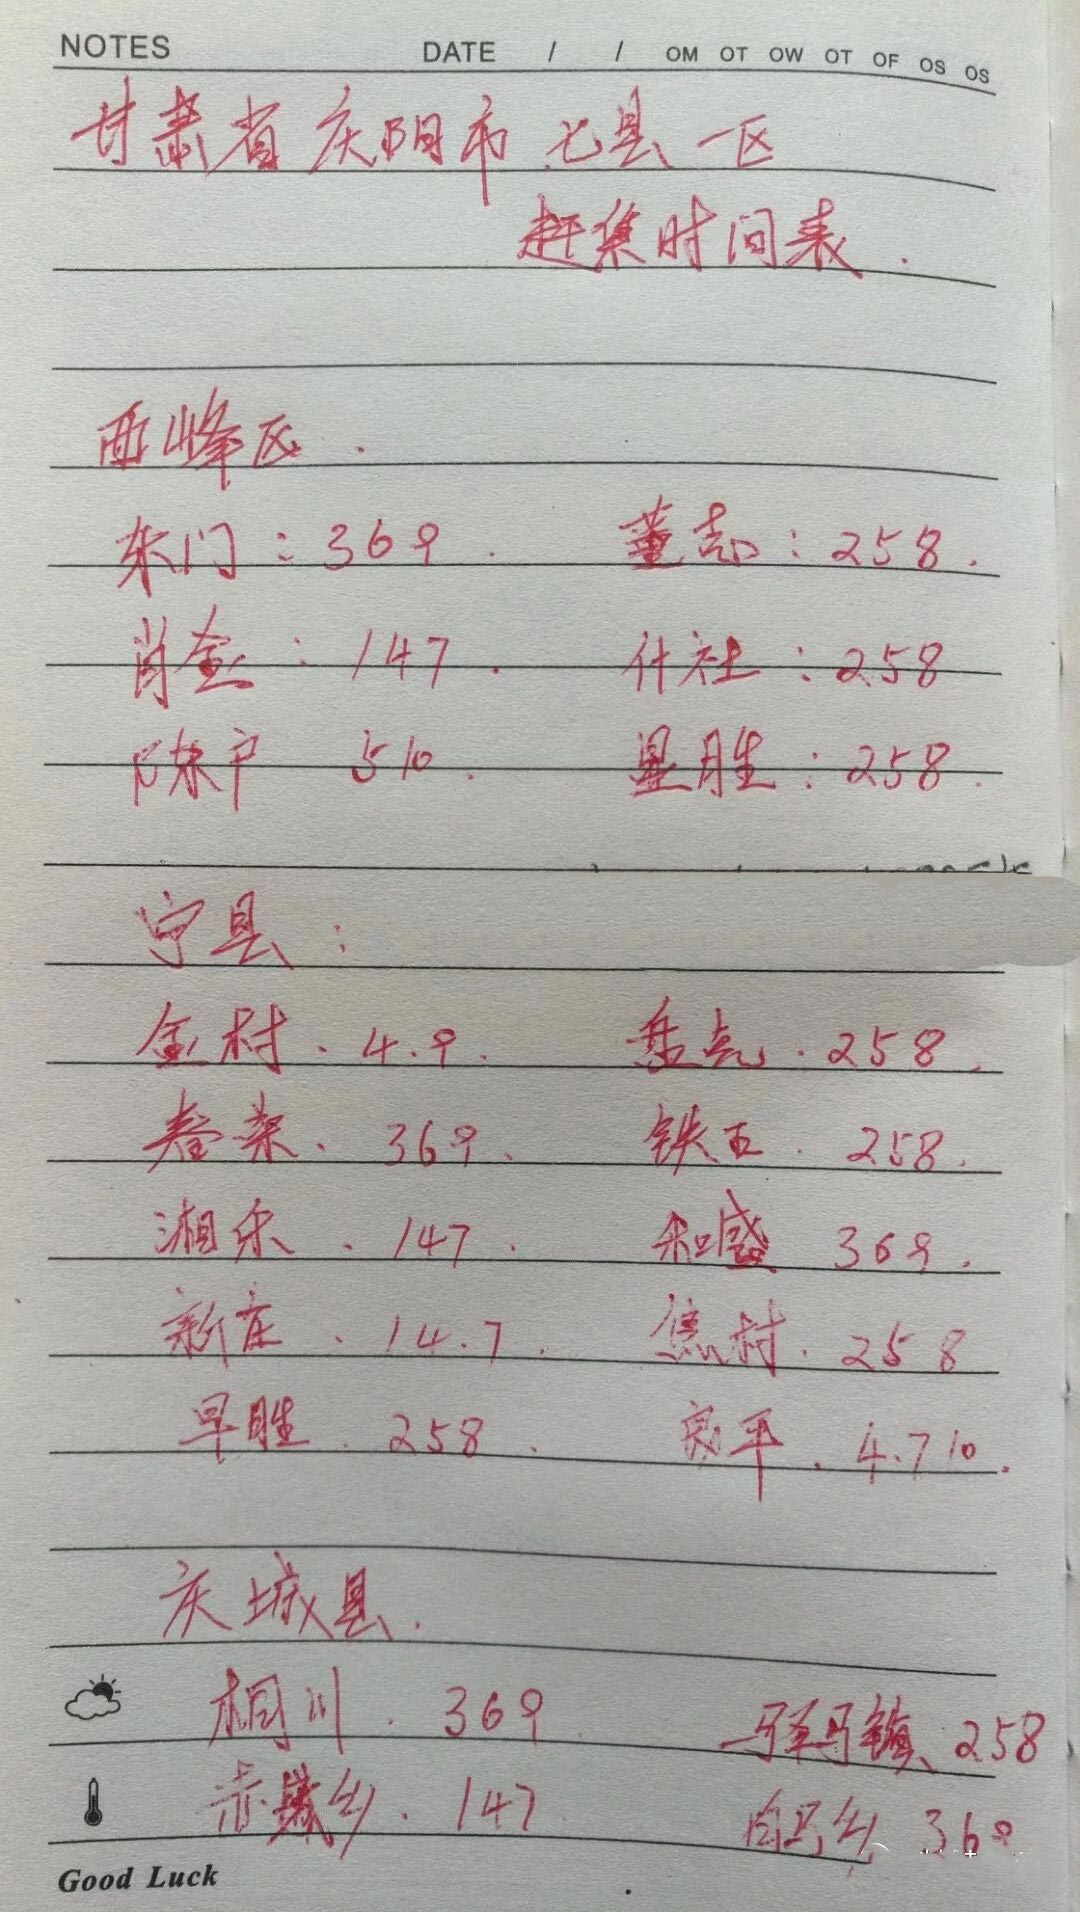 NOTES DATE / / OM OT OW OT OF OS OS
甘肃省庆阳市七县一区
赶集时间表.
西峰区.
东门:369. 董志:258.
肖金:147. 什社:258
陈户 510. 显胜:258.
宁县:
金村.4.9. 盘克.258.
春荣.369. 铁王.258.
湘乐.147. 和盛 369.
新庄.14.7. 焦村.258
早胜.258. 良平.4.710.
庆城县.
桐川.369. 驿马镇、258
赤城乡.147 白马乡 369
Good Luck